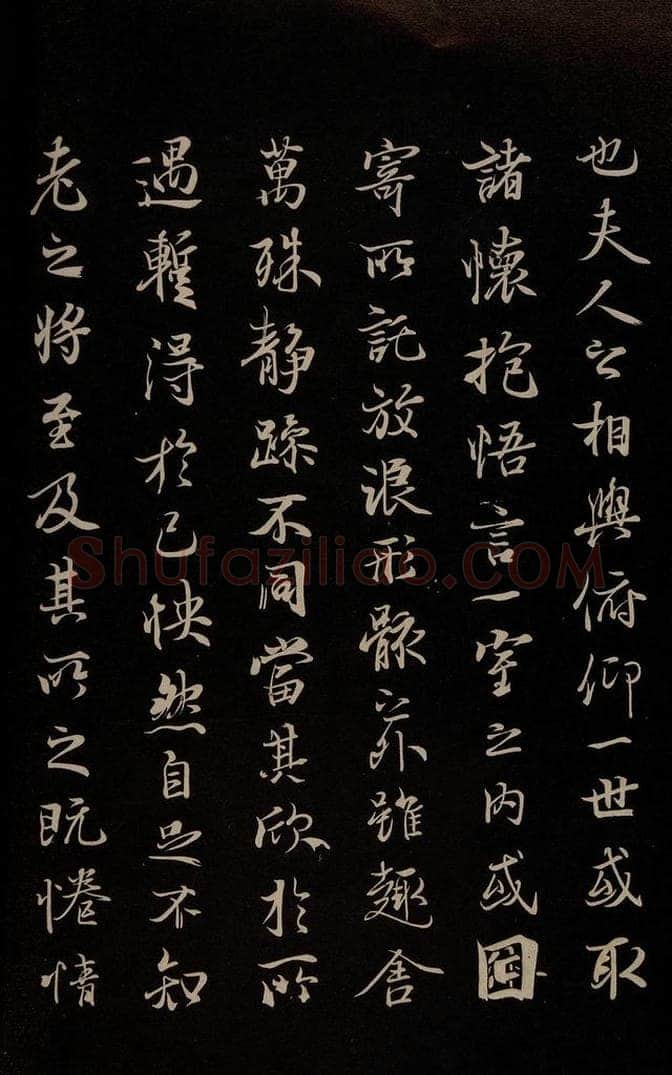 也夫人之相與俯仰一世或取
諸懷抱悟言一室之內或因
寄所託放浪形骸之外雖趣舍
萬殊静躁不同當其欣於所
遇暫得於己怏然自足不知
老之將至及其所之既惓情
Shufaziliao.COM